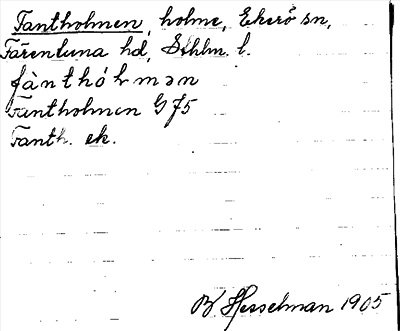 Fantholmen, holme, Ekerö sn,
Färentuna hd, Sthlm. l.
fànthólmən
Fantholmen G f5
Fanth. ek.
B Hesselman 1905